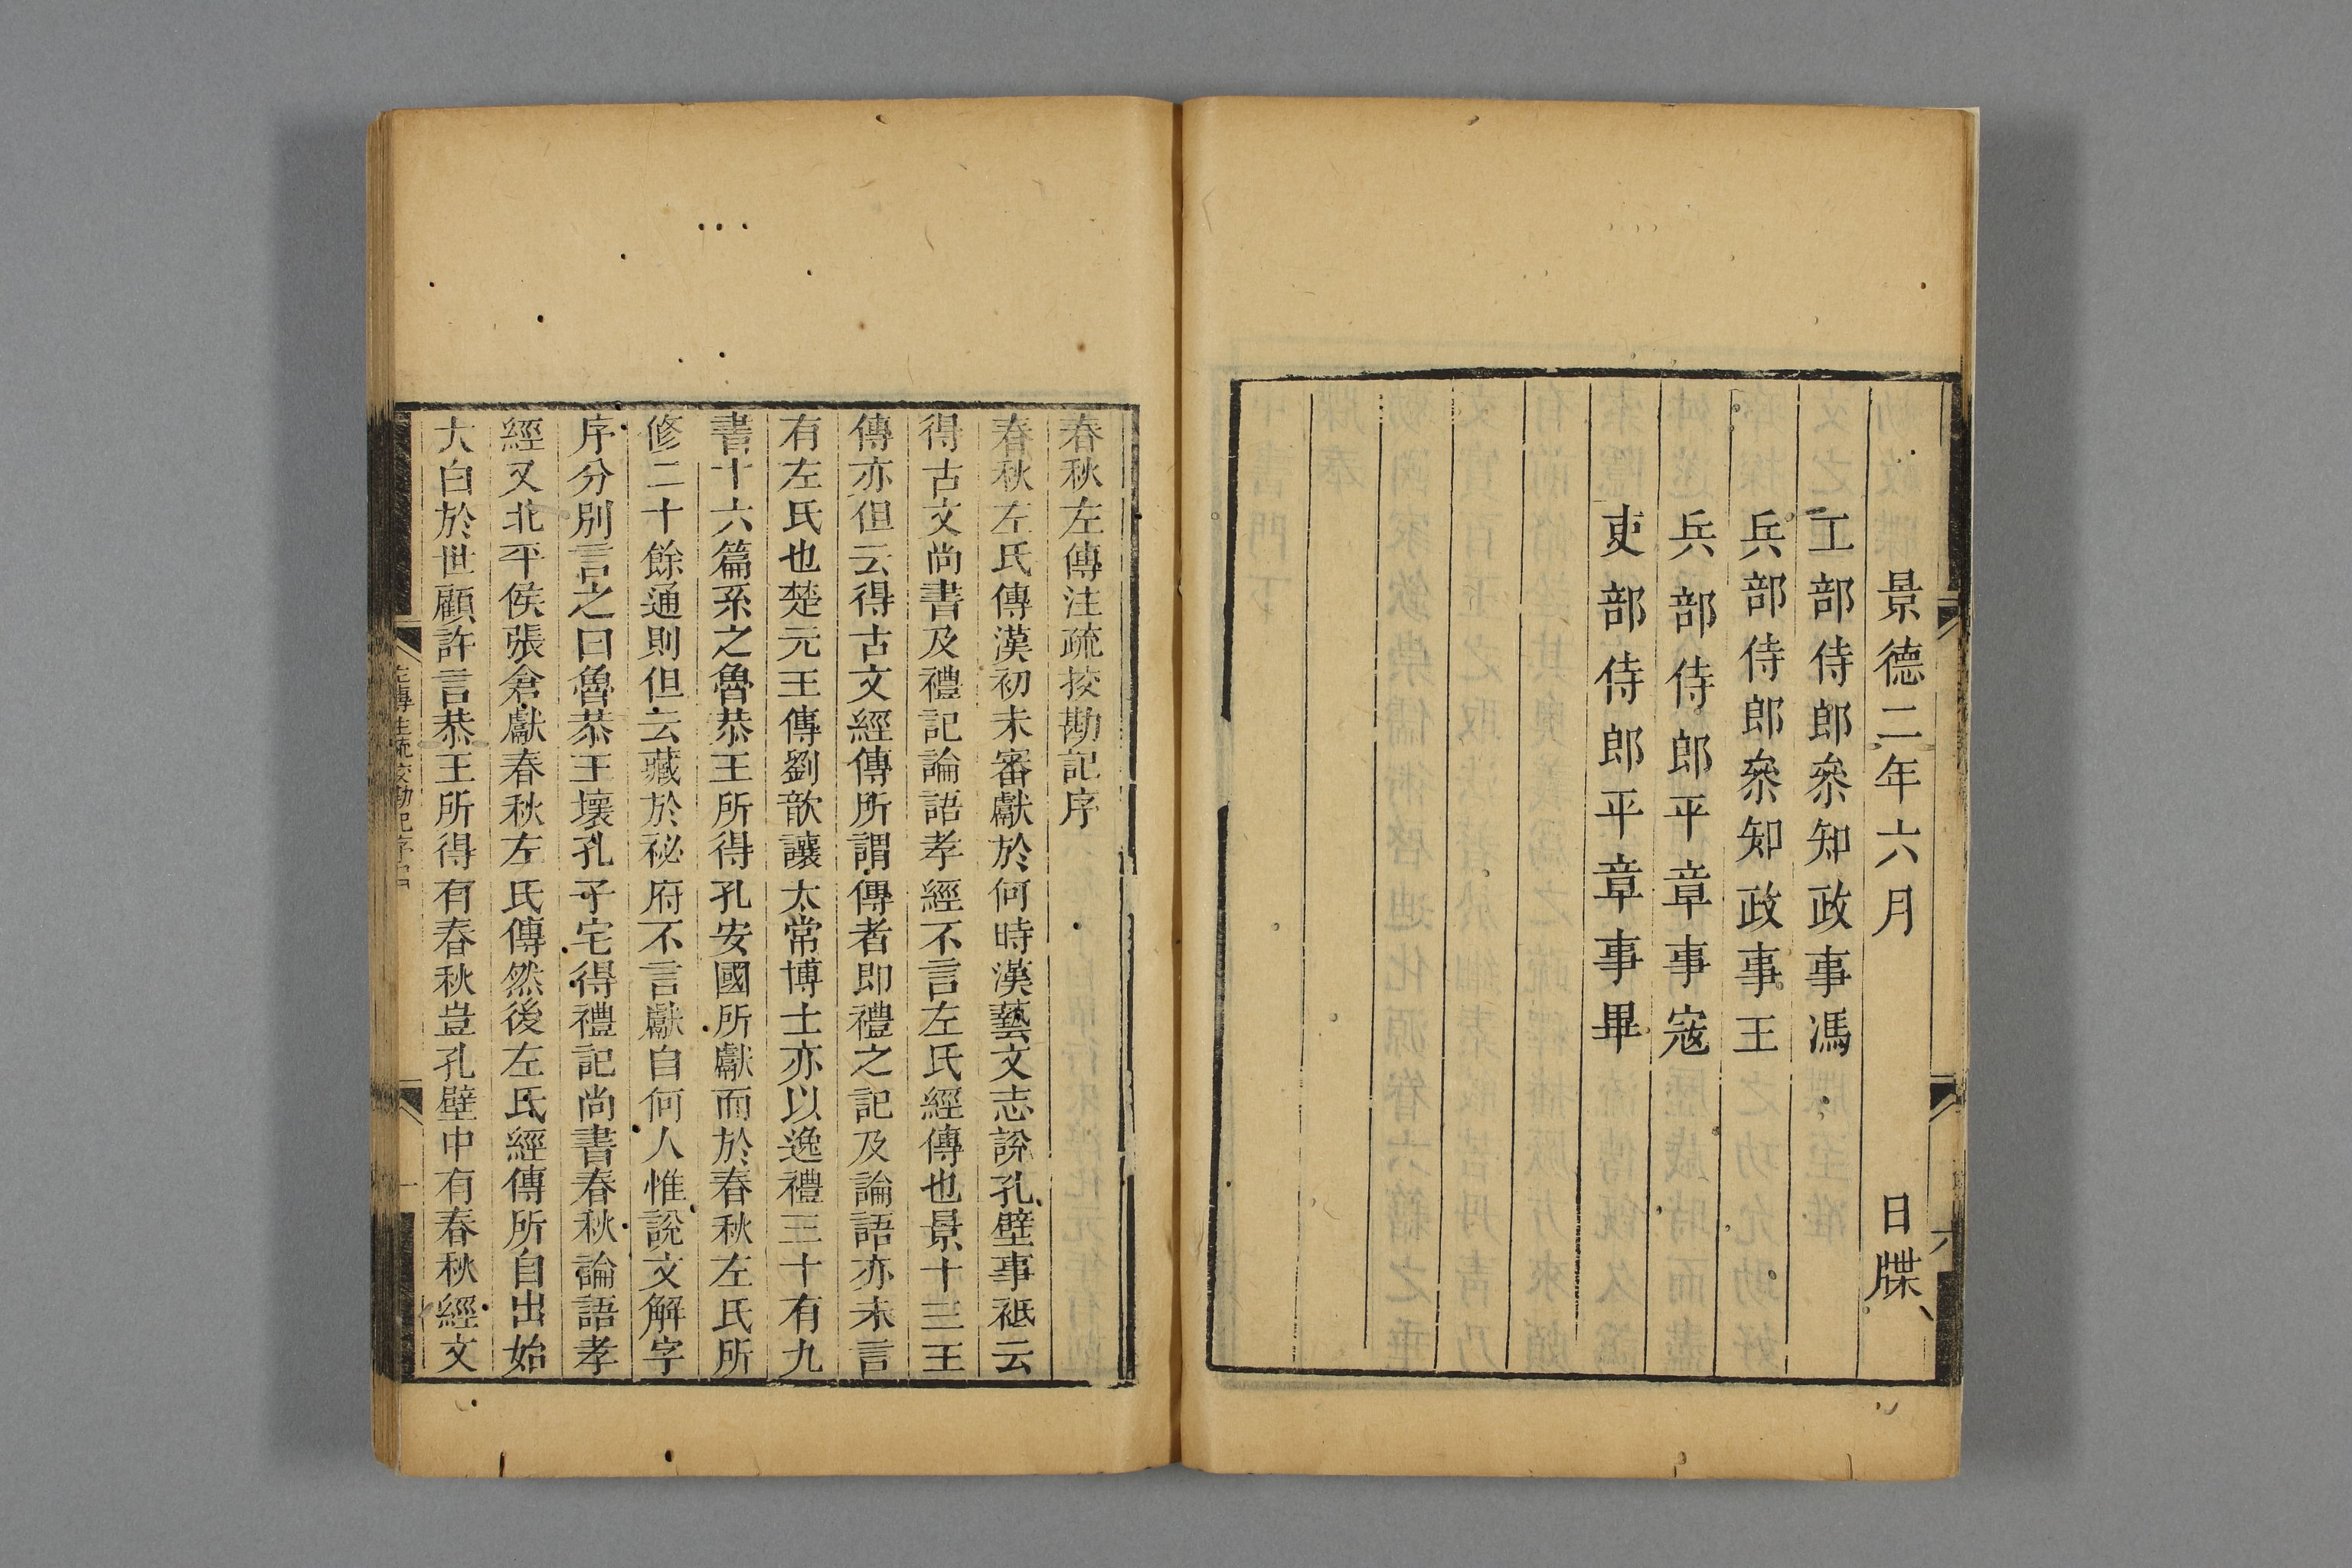 景德二年六月 日牒
工部侍郎叅知政事馮
兵部侍郎叅知政事王
兵部侍郎平章事寇
吏部侍郎平章事畢
六
春秋左傳注疏挍勘記序
春秋左氏傳漢初未審獻於何時漢藝文志說孔壁事祗云
得古文尚書及禮記論語孝經不言左氏經傳也景十三王
傳亦但云得古文經傳所謂傳者即禮之記及論語亦未言
有左氏也楚元王傳劉歆讓太常博士亦以逸禮三十有九
書十六篇系之魯恭王所得孔安國所獻而於春秋左氏所
修二十餘通則但云藏於祕府不言獻自何人惟說文解字
序分別言之曰魯恭王壞孔子宅得禮記尚書春秋論語孝
經又北平侯張倉獻春秋左氏傳然後左氏經傳所自出始
大白於世顧許言恭王所得有春秋豈孔壁中有春秋經文
左傳注疏校勘記序
一